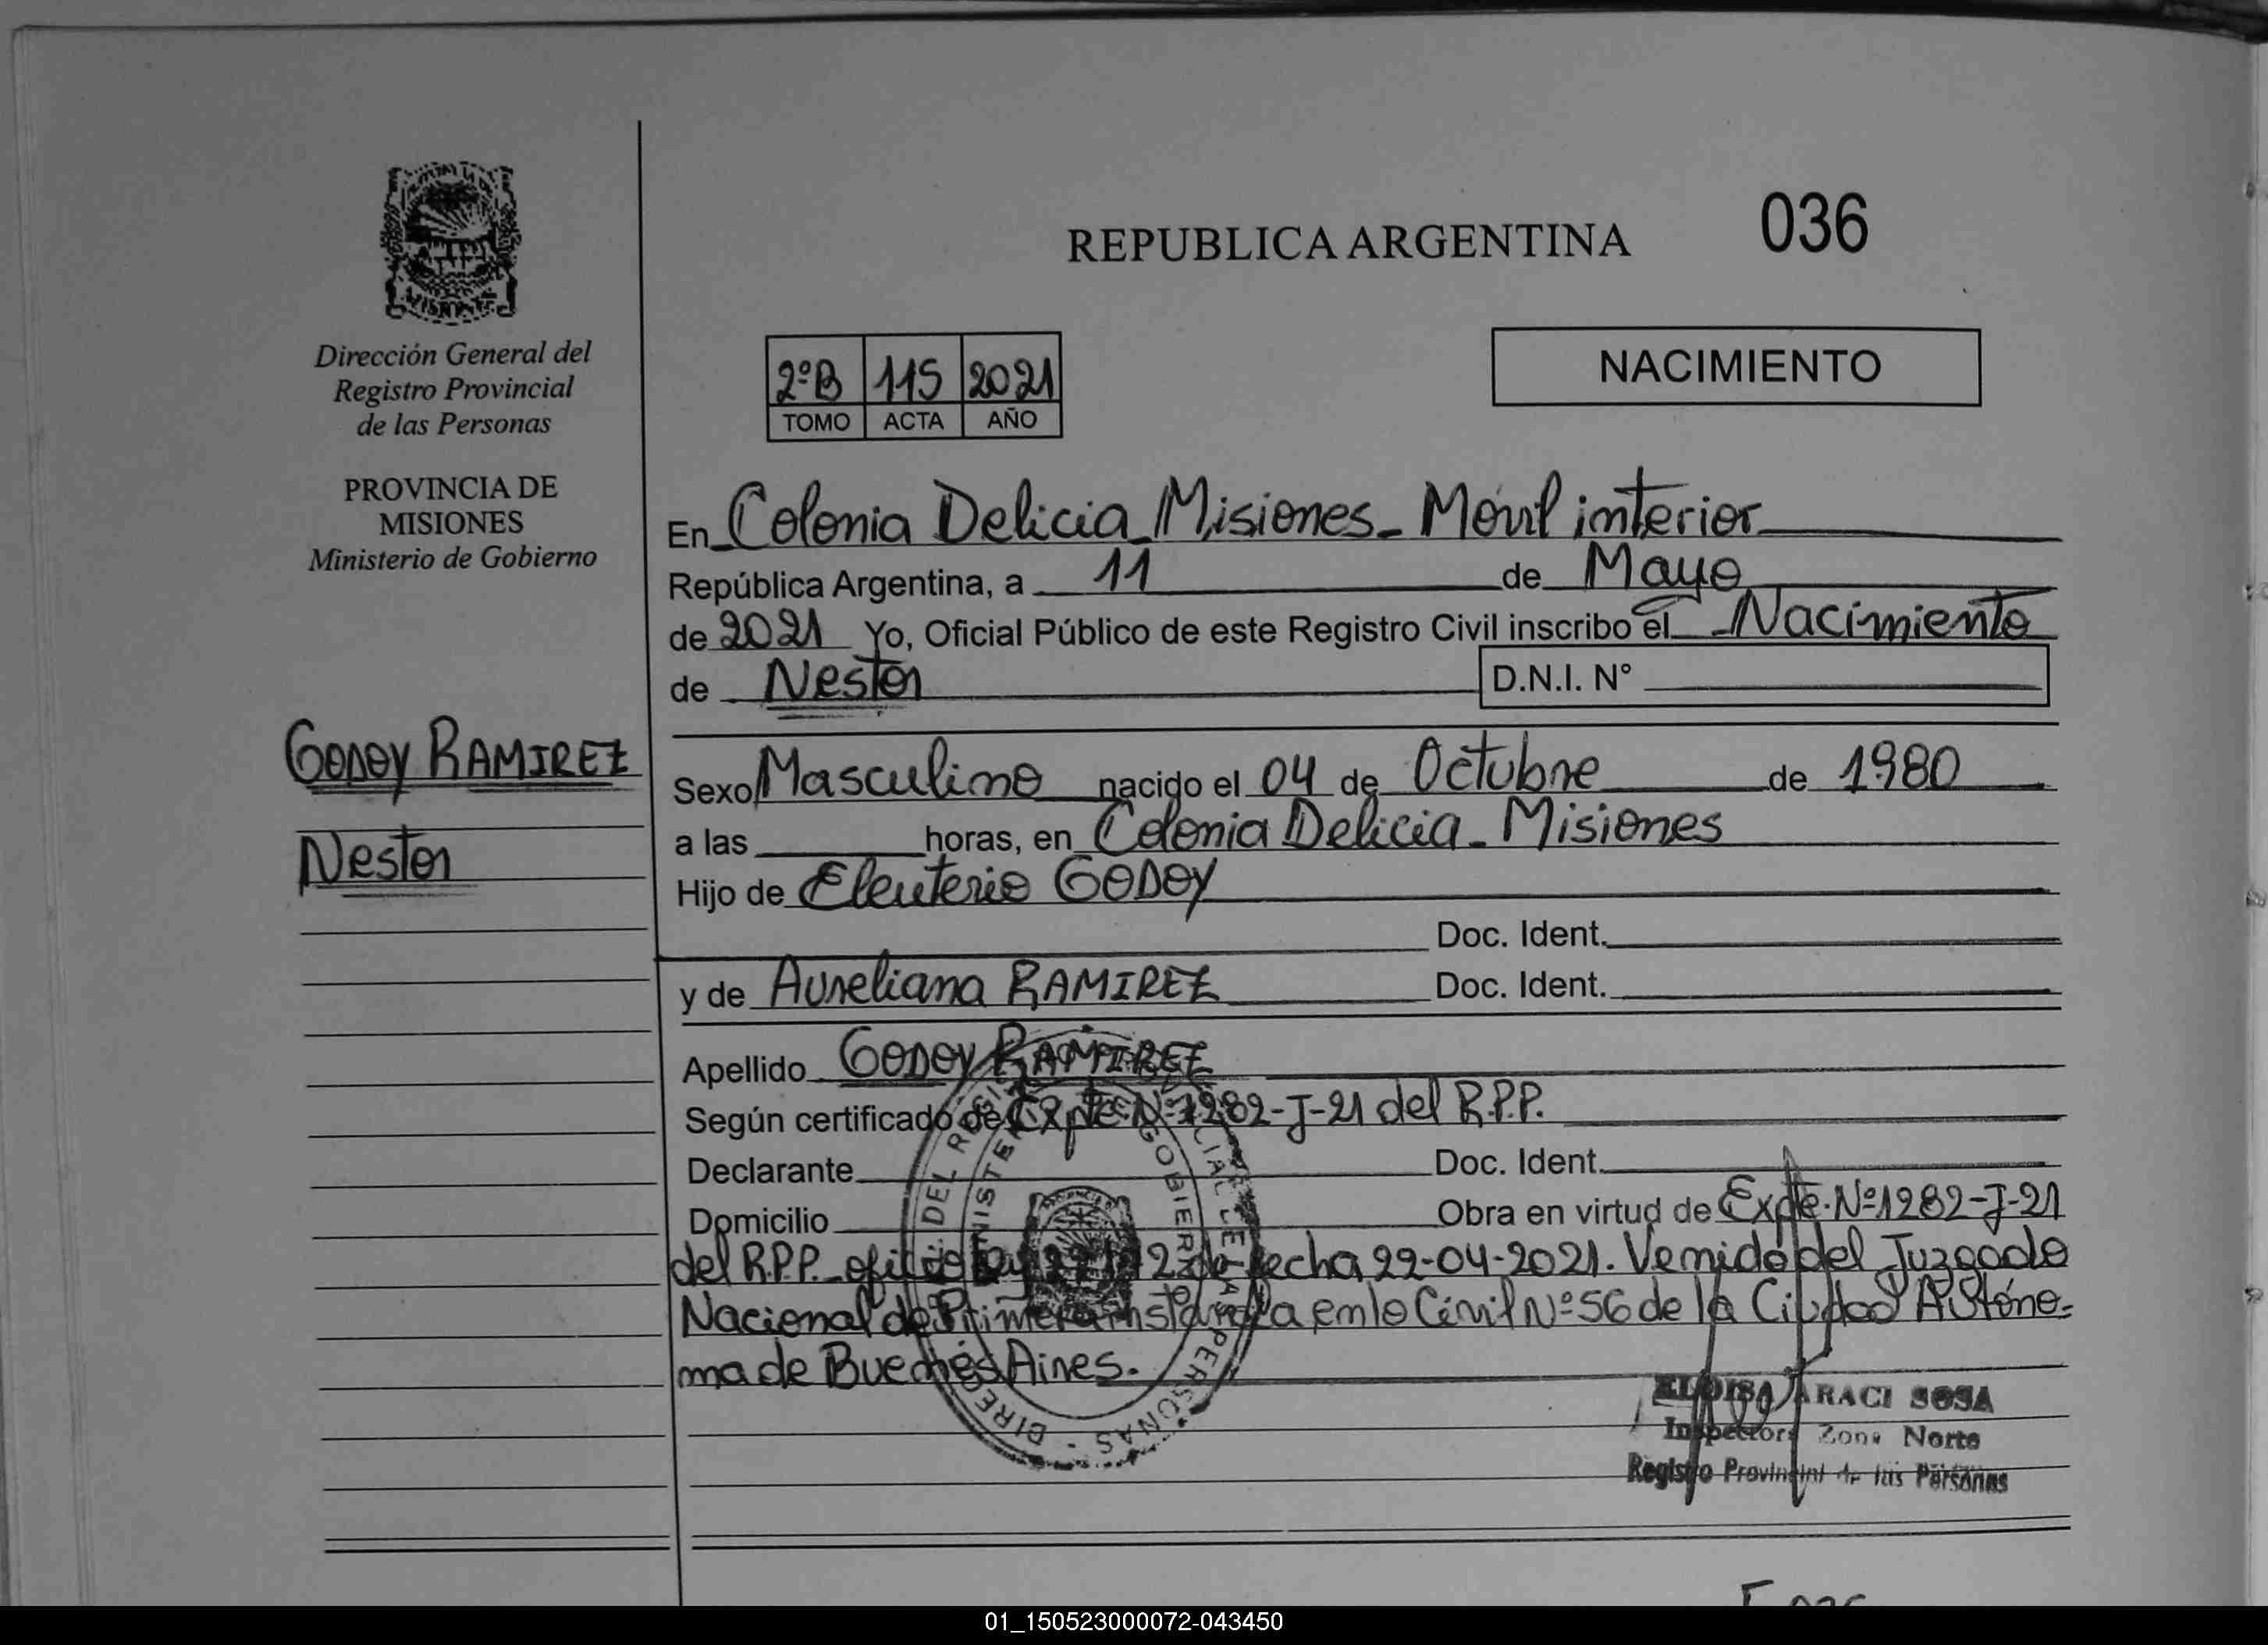 REPUBLICA ARGENTINA
036
Dirección General del
Registro Provincial
de las Personas
PROVINCIA DE
MISIONES
Ministerio de Gobierno
2ºB 115 2021
TOMO ACTA AÑO
NACIMIENTO
En Colonia Delicia Misiones - Movil interior
República Argentina, a 11 de Mayo
de 2021 Yo, Oficial Público de este Registro Civil inscribo el Nacimiento
de Nestor D.N.I. Nº
GODOY RAMIREZ
Nestor
Sexo Masculino nacido el 04 de Octubre de 1980
a las horas, en Colonia Delicia - Misiones
Hijo de Eleuterio GODOY
Doc. Ident.
y de Aureliana RAMIREZ Doc. Ident.
Apellido GODOY RAMIREZ
Según certificado de Expte Nº 1282-J-21 del R.P.P.
Declarante Doc. Ident.
Domicilio Obra en virtud de Expte. Nº 1282-J-21
del R.P.P. fecha 22-04-2021. Venido del Juzgado
Nacional de Primera Instancia en lo Civil Nº 56 de la Ciudad Autóno-
ma de Buenos Aires.
ELOISA ARACI SOSA
Inspectora Zona Norte
Registro Provincial de las Personas
01_150523000072-043450